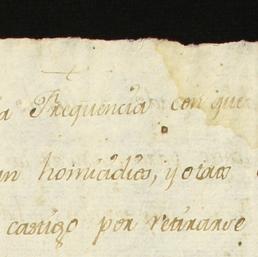 a Frequencia con que
an homicidios, y otras
castigo por retirarse